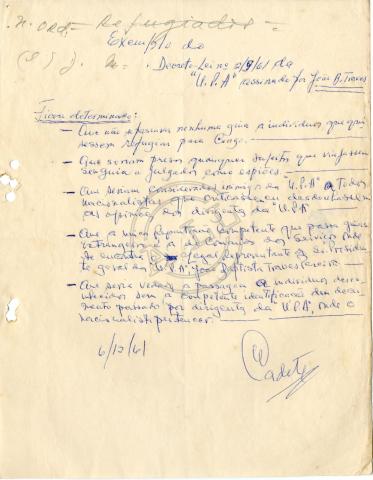 N. ORD. - Refugiados -
Exemplo do
(S) J. N. - . Decreto-Lei nº 2/9/61 da
"U.P.A" assinado por João B. Traves
Ficou determinado:
— Que não se passava nenhuma guia a individuos que qui
sessem refugiar para Congo.
— Que seriam presos quaisquer sujeitos que viajassem
sem guia e julgados como espiões.
— Que seriam considerados inimigos da "U.P.A" a todos
nacionalistas que criticassem ou desobedecessem
as opiniões dos dirigentes da "U.P.A"
— Que a única Repartição competente que passa guias
é a do Comando dos Serviços onde
se encontra o legal Representante do Sr. Presiden
te geral da "U.P.A" João Batista Traves
— Que seria vedada a passagem a individuos desco-
nhecidos sem a competente identificação dum docu-
mento passado por dirigente da U.P.A, onde o
nacionalista pertencer.
6/12/61
Cadete